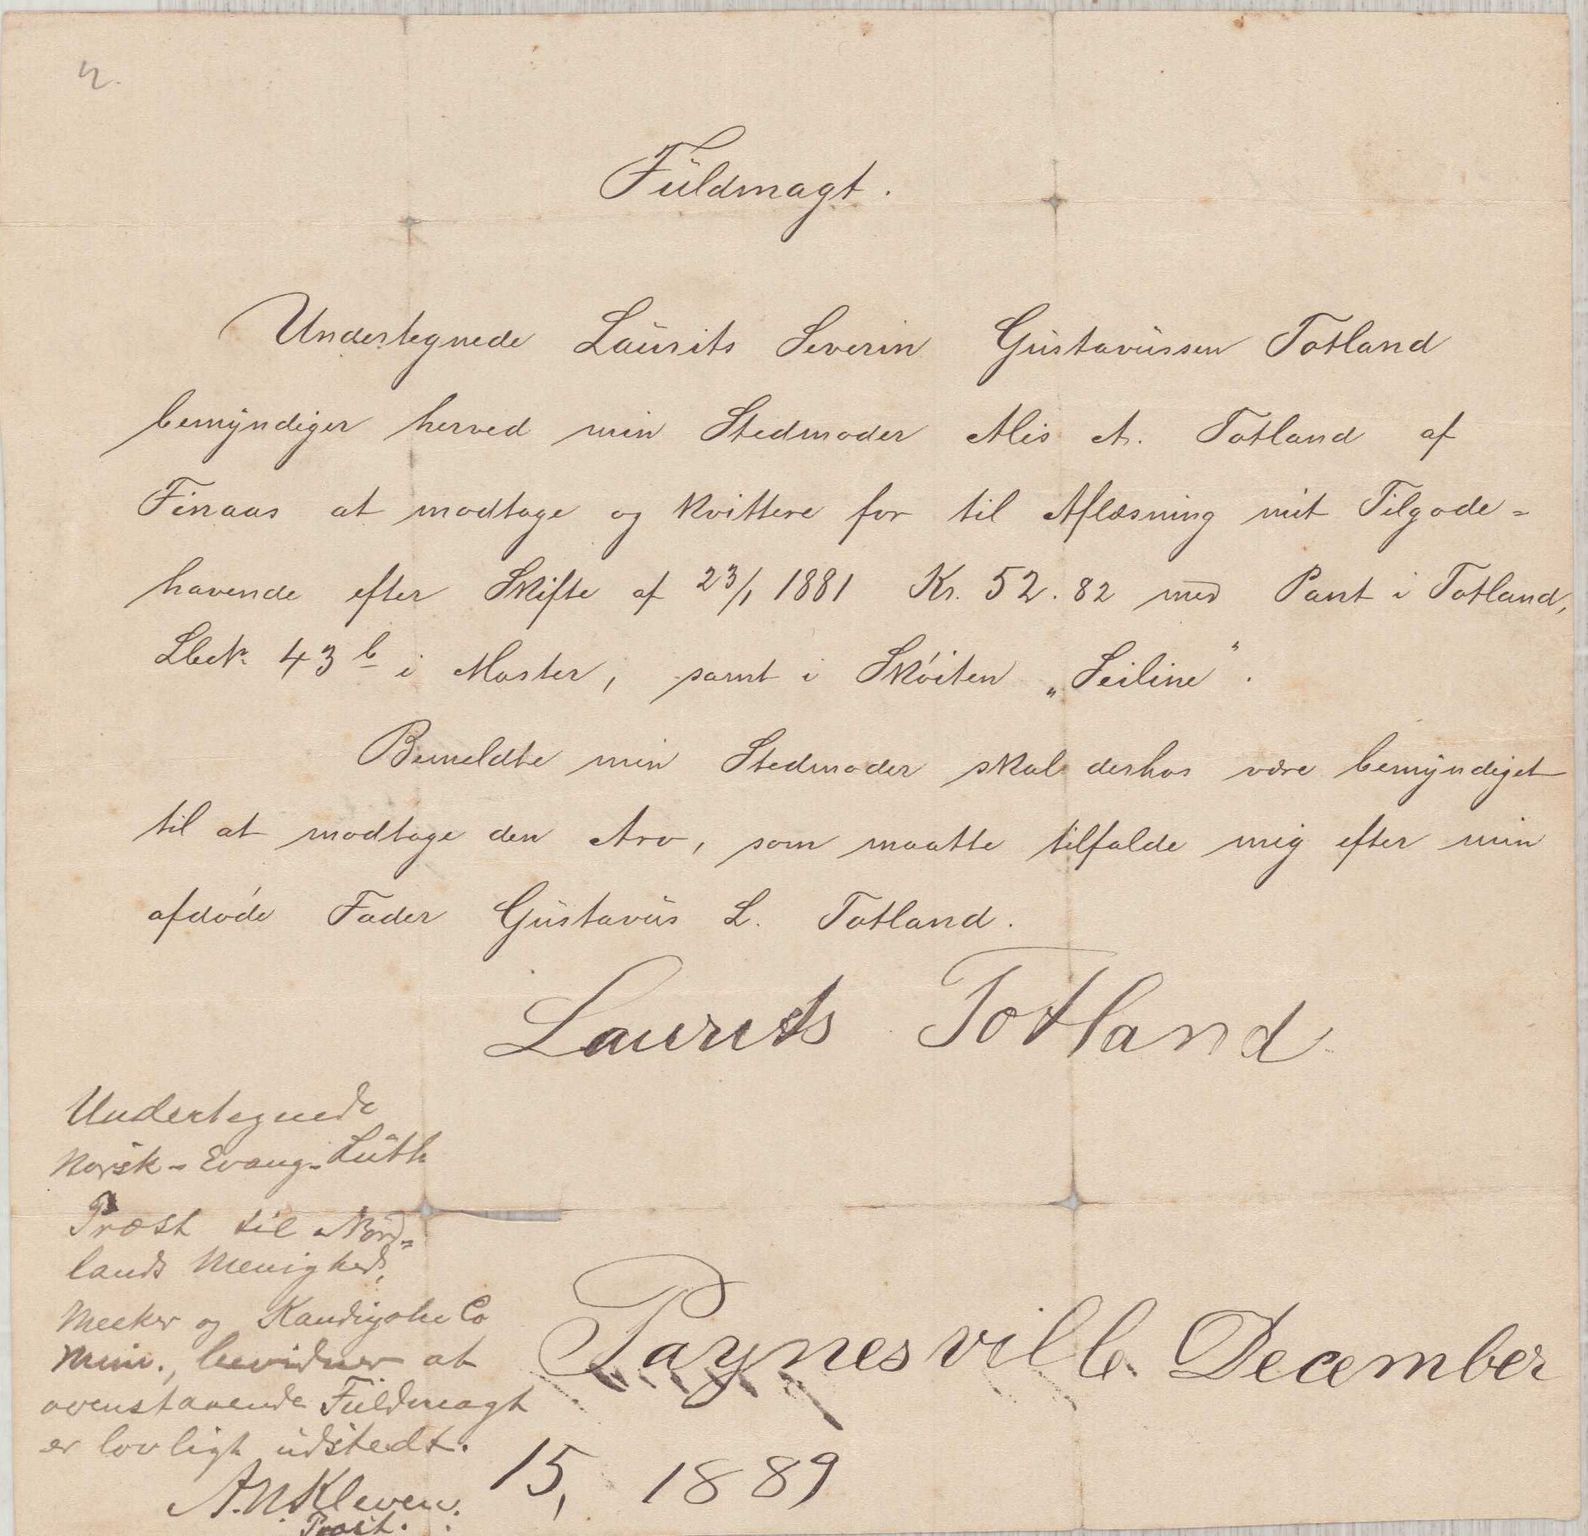 2.
Fuldmagt.
Undertegnede Laurits Severin Gustavussen Totland
bemyndiger herved min Stedmoder Alis A. Totland af
Finaas at modtage og kvittere for til Aflæsning mit Tilgode-
havende efter Skifte af 23/1 1881 Kr. 52.82 med Pant i Totland,
43 b i Moster, samt i Skøiten „Seiline”.
Bemeldte min Stedmoder skal derhos være bemyndiget
til at modtage den Arv, som maatte tilfalde mig efter min
afdøde Fader Gustavus L. Totland.
Laurits Totland
Undertegnede
Norsk-Evang-Luth
Præst til Nord-
lands Menighed,
Meeker og Kandiyohi Co
Minn., bevidner at
ovenstaaende Fuldmagt
er lovligt udstedt.
A.N. Kleven.
Præst.
Paynesville December
15, 1889